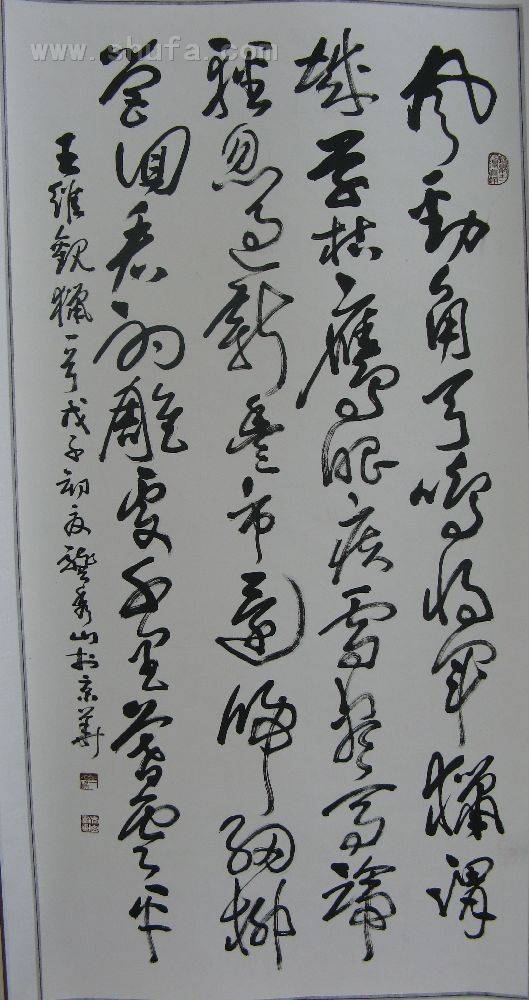 www.shufa.com
風勁角弓鳴將軍獵渭
城草枯鷹眼疾雪盡馬蹄
輕忽過新豐市還歸細柳
營回看射雕處千里暮雲平
王維觀獵一首戊子初夏龔秀山於京華